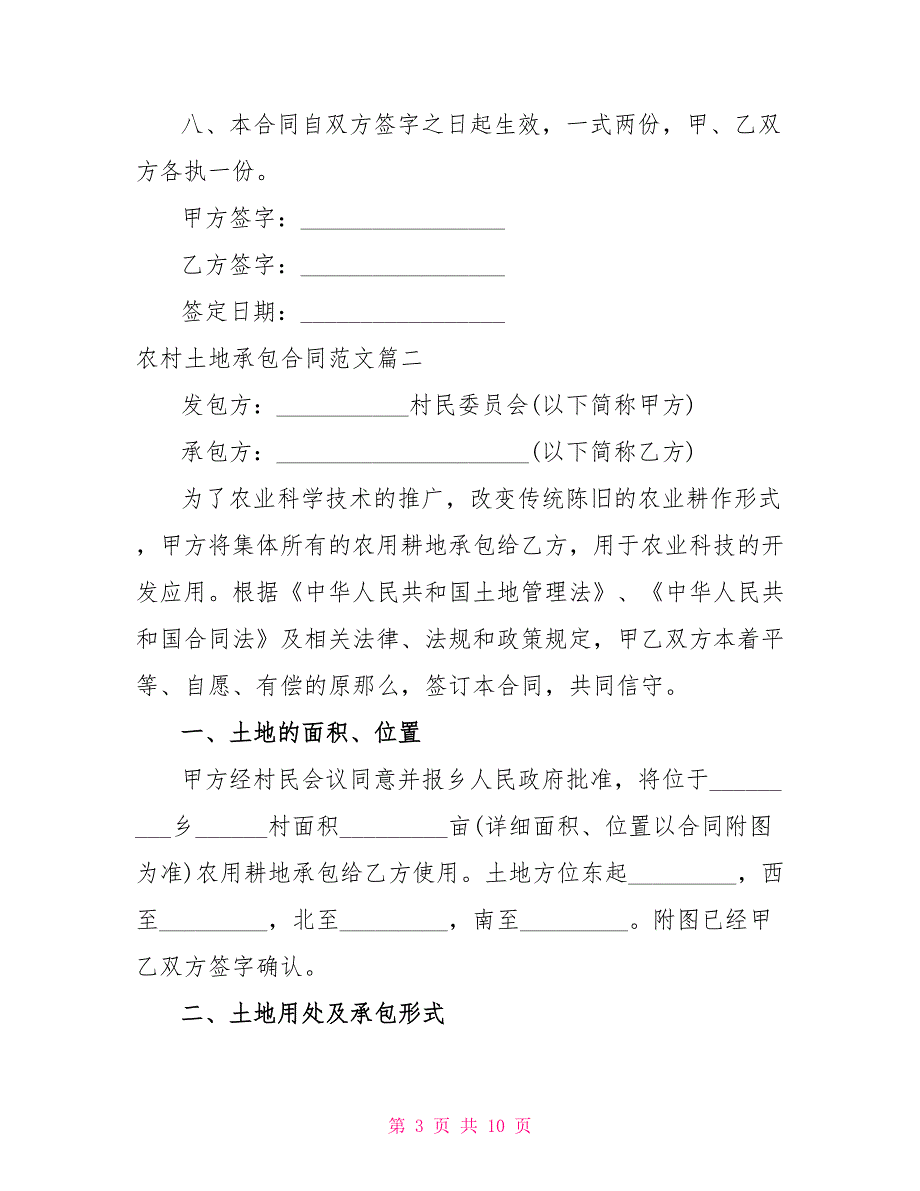 八、本合同自双方签字之日起生效，一式两份，甲、乙双
方各执一份。
甲方签字：_________________
乙方签字：_________________
签定日期：_________________
农村土地承包合同范文篇二
发包方：___________村民委员会(以下简称甲方)
承包方：_____________________(以下简称乙方)
为了农业科学技术的推广，改变传统陈旧的农业耕作形式
，甲方将集体所有的农用耕地承包给乙方，用于农业科技的开
发应用。根据《中华人民共和国土地管理法》、《中华人民共
和国合同法》及相关法律、法规和政策规定，甲乙双方本着平
等、自愿、有偿的原那么，签订本合同，共同信守。
一、土地的面积、位置
甲方经村民会议同意并报乡人民政府批准，将位于______
___乡______村面积_________亩(详细面积、位置以合同附图
为准)农用耕地承包给乙方使用。土地方位东起_________，西
至_________，北至_________，南至_________。附图已经甲
乙双方签字确认。
二、土地用处及承包形式
第 3 页 共 10 页